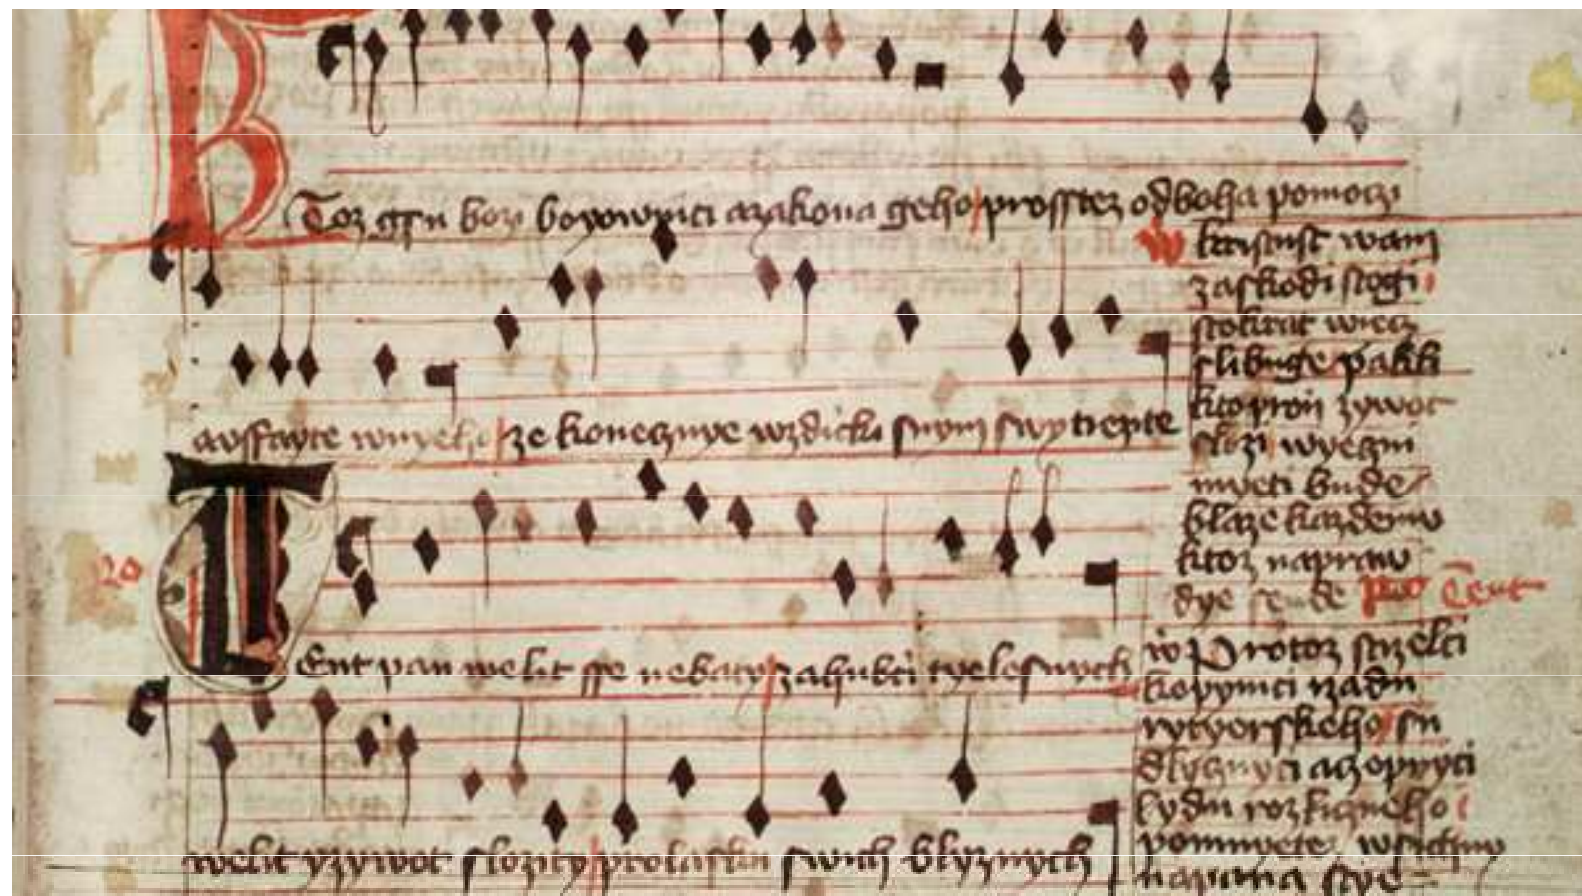 Ktoz gsu bozi boyownici azakona geho prosstez odboha pomoczi
aussayte wnyeho ze konecznye wzdicki snym swytiezite
Tent pan welit sse nebaty zahubci tyelesnych
welit yzywot slozity prolasku swich blyznych
kristust wam
zaskodi stogi
stokrat wiecz
slibuge pakli
kto pron zywot
slozi wyeczni
myeti bude
blaze kazdemu
ktoz napraw
dye Tent
Protoz strzelci
kopynici rzadu
rytyerskeho su
lydu rozlicneho
pomnyete wssichni
napana